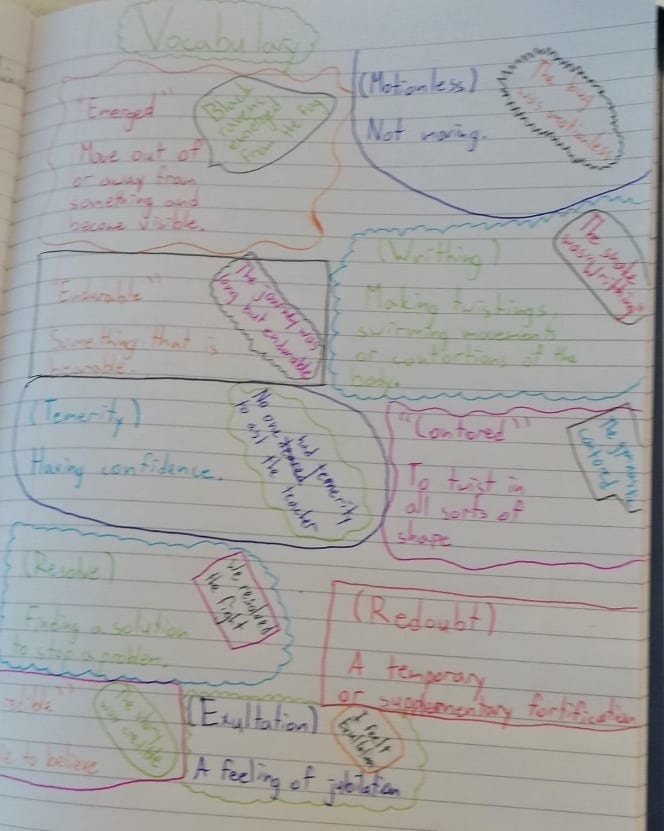 Vocabulary
"Emerged"
Move out of
or away from
something and
become visible.
Black
ravens
emerged
from the fog
(Motionless)
Not moving.
The bug
was motionless
"Endurable"
Something that is
bearable.
The journey was
long but endurable
(Writhing)
Making twistings,
swirming movements
or contortions of the
body.
The snake
was writhing
(Temerity)
Having confidence.
No one had temerity
to ask the teacher
"Contored"
To twist in
all sorts of
shape
The
contored
(Resolve)
Finding a solution
to stop a problem.
We resolved
the fight
(Redoubt)
A temporary
or supplementary fortification
to believe
The story
was
(Exultation)
A feeling of jubilation
I felt
Exultation